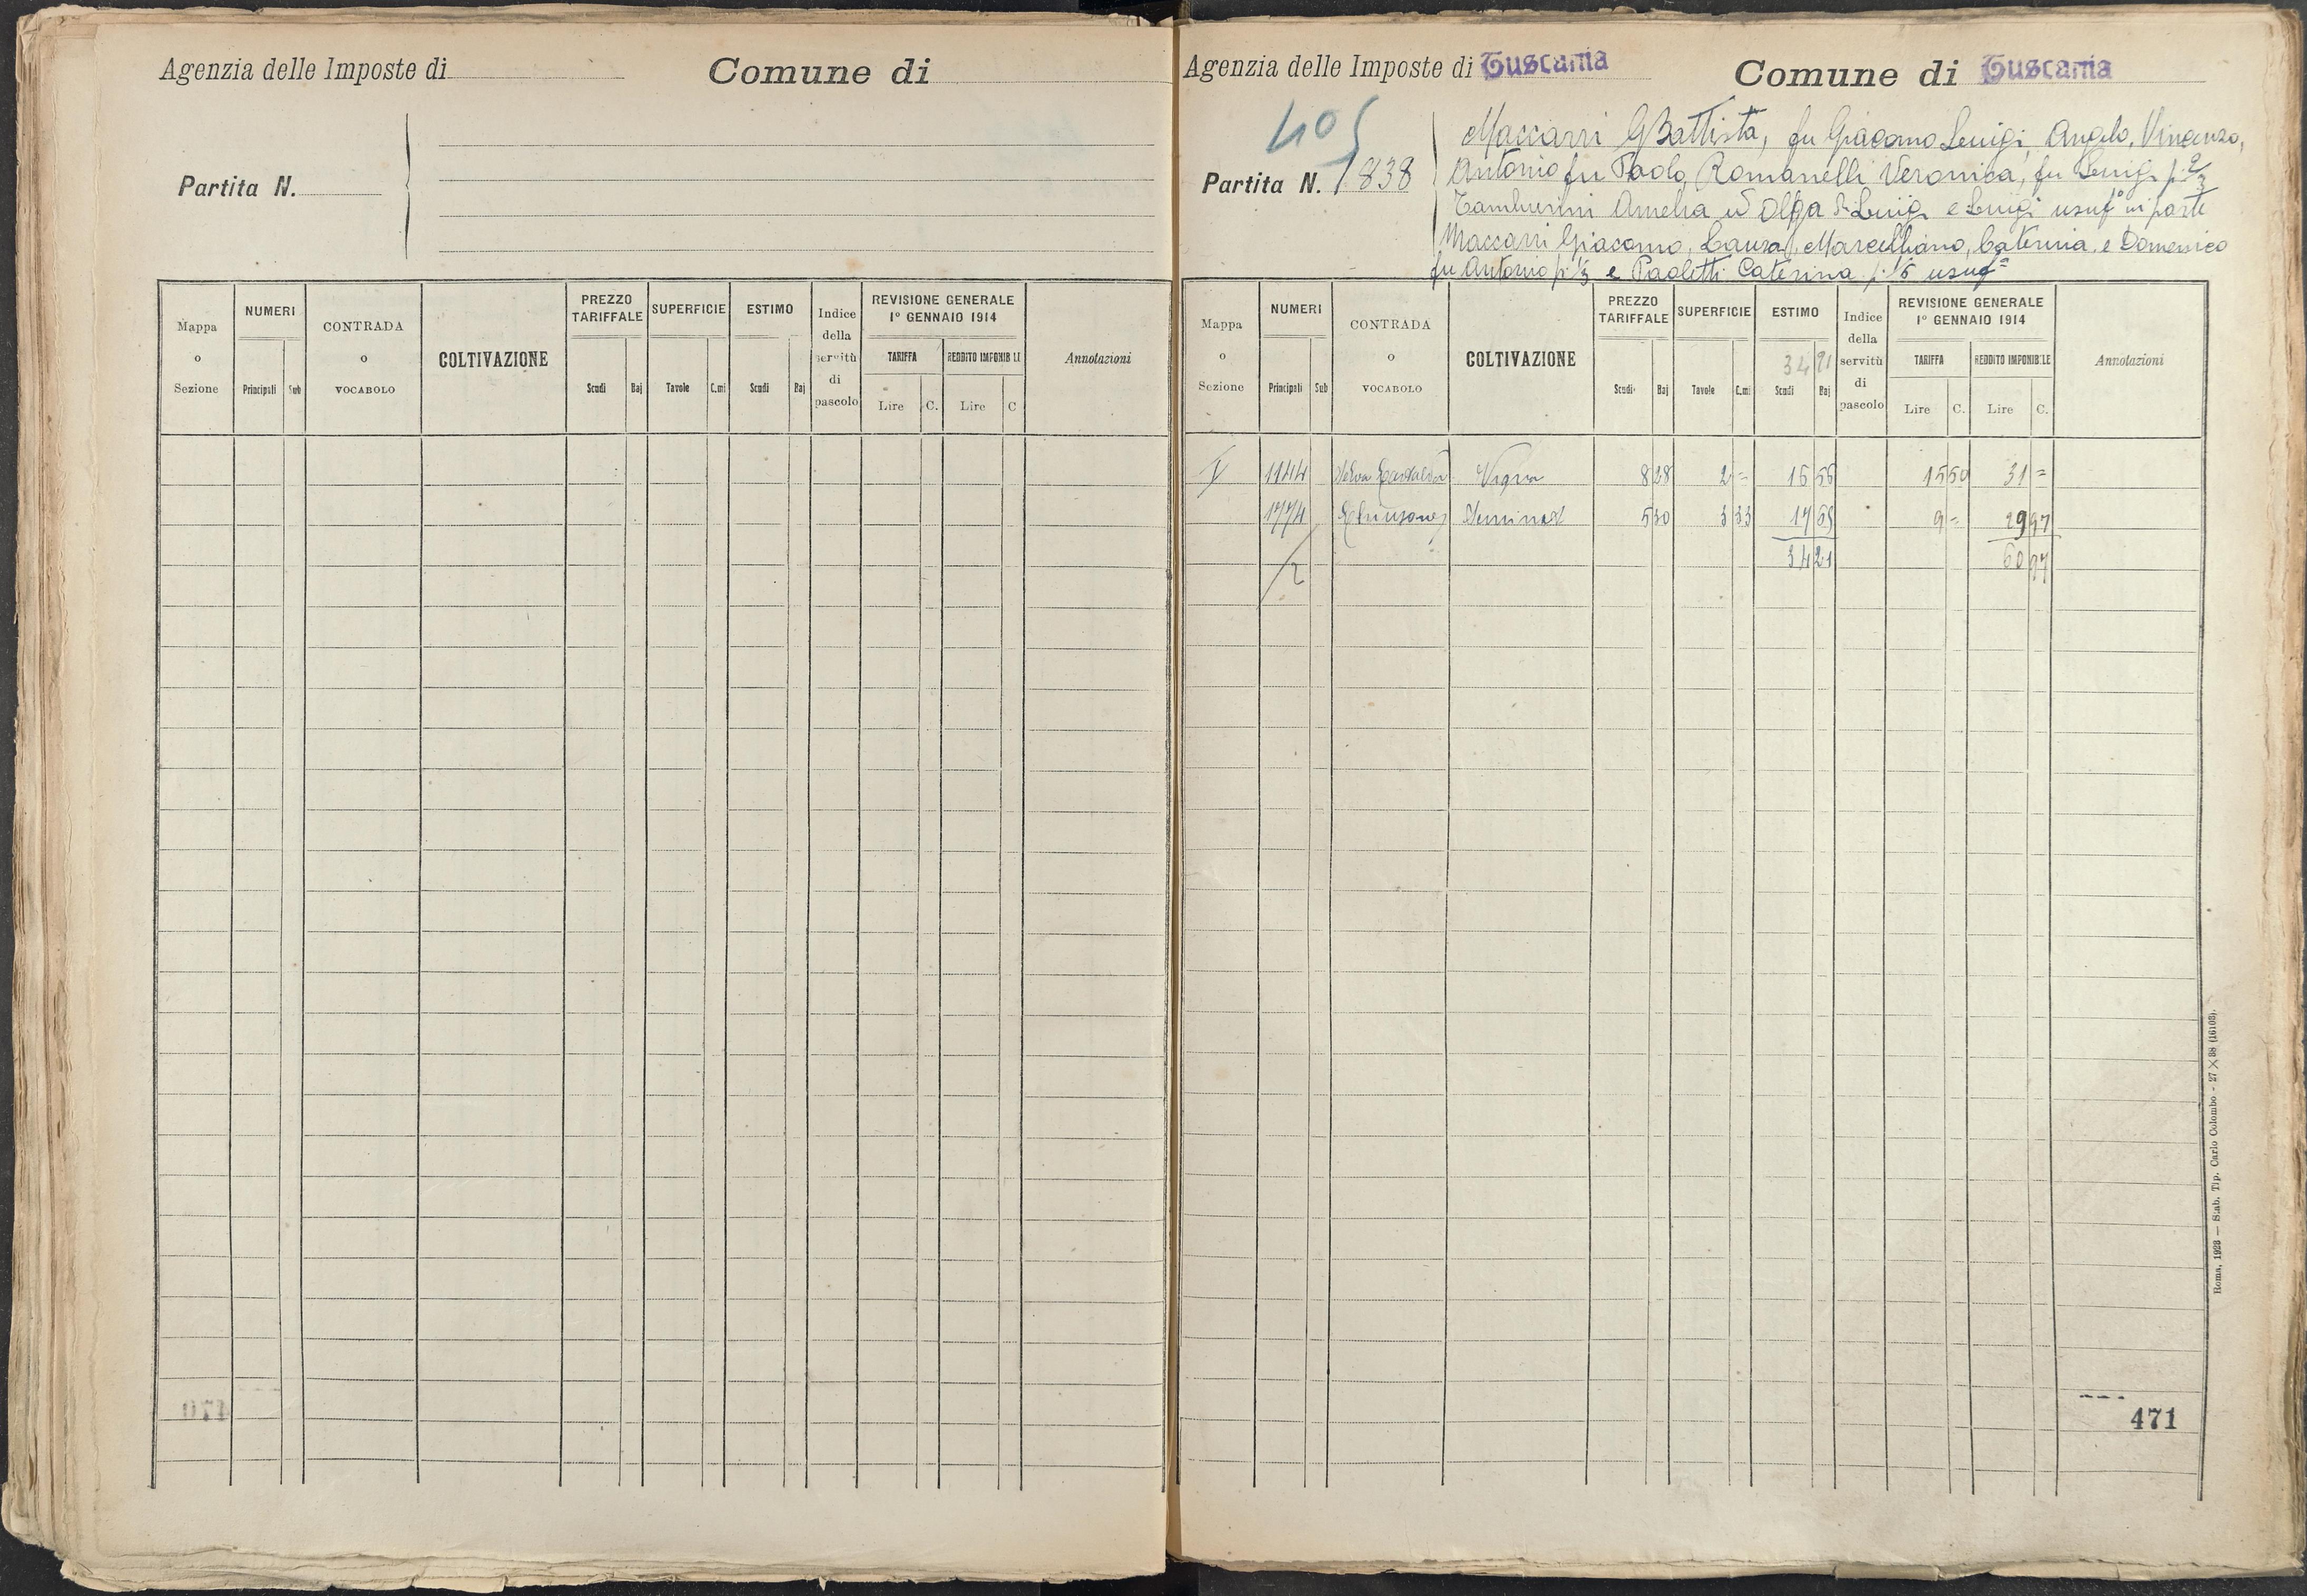 Agenzia delle Imposte di
Comune di
Partita N.
Mappa o Sezione
NUMERI
Principali
Sub
CONTRADA o VOCABOLO
COLTIVAZIONE
PREZZO TARIFFALE
Scudi
Baj
SUPERFICIE
Tavole
C.mi
ESTIMO
Scudi
Baj
Indice della servitù di pascolo
REVISIONE GENERALE
1º GENNAIO 1914
TARIFFA
REDDITO IMPONIBILE
Lire
C.
Lire
C
Annotazioni
Agenzia delle Imposte di Tuscania
Comune di Tuscania
405
Partita N. 1838
Maccarri GBattista, fu Giacomo Luigi, Angelo, Vincenzo,
Antonio fu Paolo, Romanelli Veronica, fu Luigi p. 2/3
Tamburini Amelia Olga di Luigi e Luigi usufº in parte
Maccarri Giacomo, Laura, Marcelliano, Caterina e Domenico
fu Antonio p 1/3 e Paoletti Caterina usufª
Mappa o Sezione
NUMERI
Principali
Sub
CONTRADA o VOCABOLO
COLTIVAZIONE
PREZZO TARIFFALE
Scudi
Baj
SUPERFICIE
Tavole
C.mi
ESTIMO
34 21
Scudi
Baj
Indice della servitù di pascolo
REVISIONE GENERALE
1º GENNAIO 1914
TARIFFA
REDDITO IMPONIBILE
Lire
C.
Lire
C.
Annotazioni
1144 Vigna 8 28 2 = 16 56 15 50 31 =
1774 5 30 3 33 17 65 9 = 29 97
34 21 60 97
2
471
Roma, 1928 — Stab. Tip. Carlo Colombo - 27 X 38 (16103).